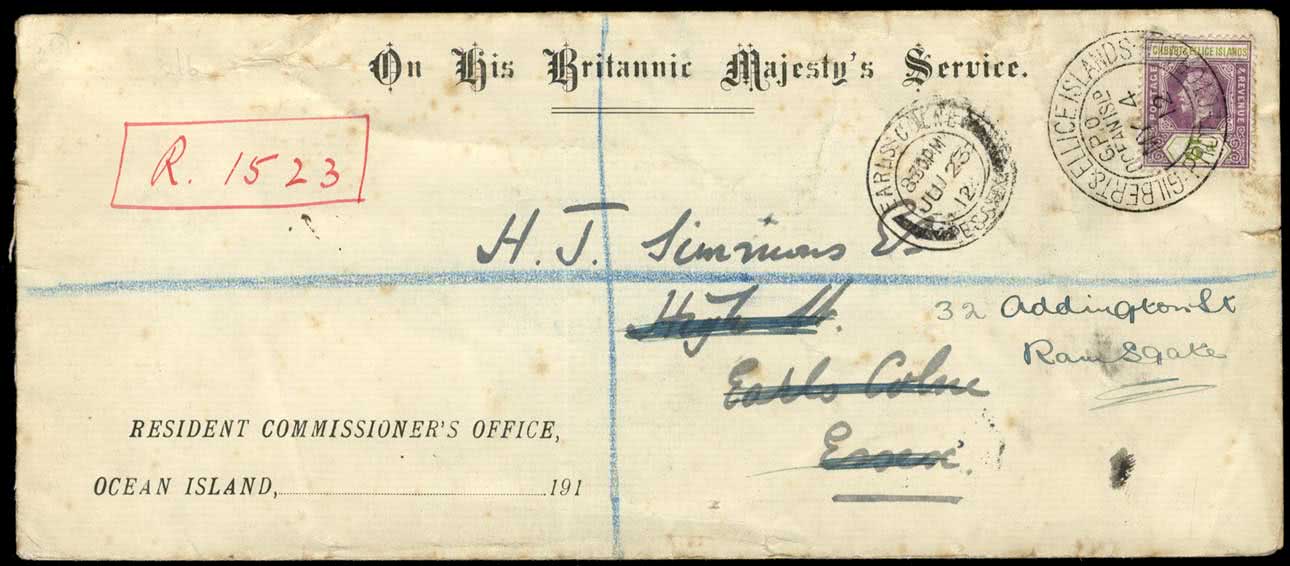 On His Britannic Majesty's Service.
GILBERT & ELLICE ISLANDS
POSTAGE & REVENUE
GILBERT & ELLICE ISLANDS
G.P.O
OCEAN ISLD
4
12
R. 1523
EARLS COLNE
8 30 PM
12
H. J. Simmons
High St.
32 Addington St
Ramsgate
Earls Colne
Essex.
RESIDENT COMMISSIONER'S OFFICE,
OCEAN ISLAND, 191